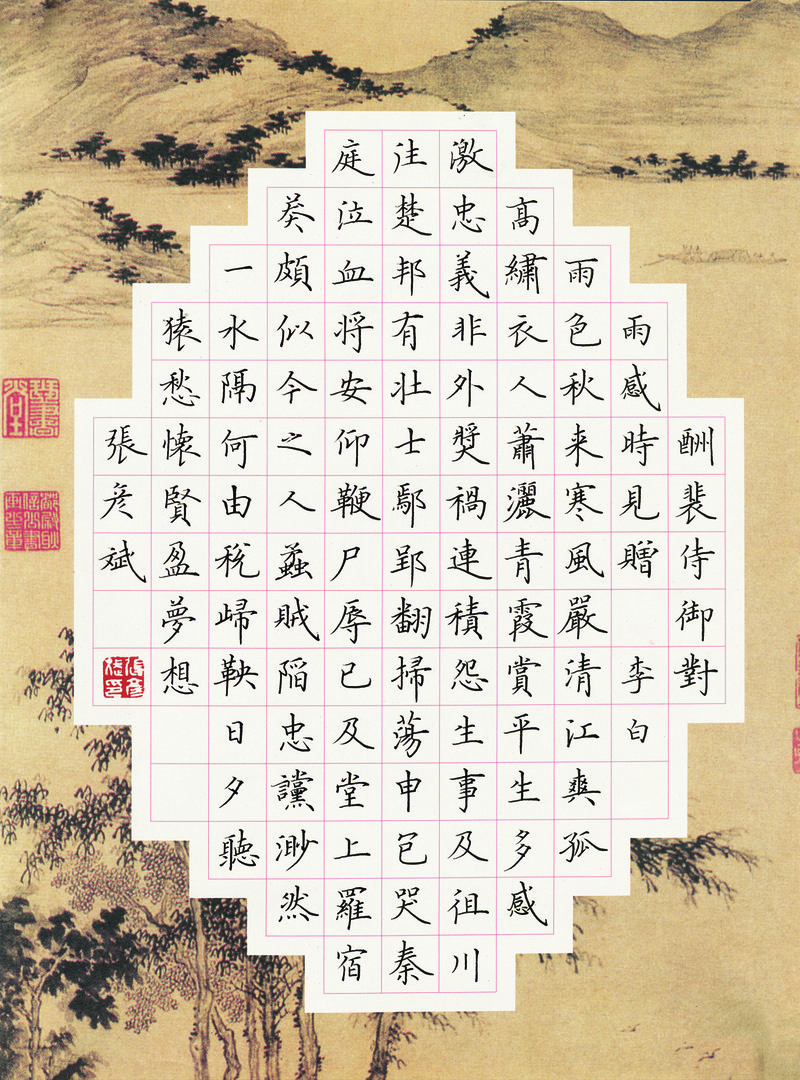 酬裴侍御對
雨感時見贈 李白
雨色秋来寒風嚴清江爽孤
高繡衣人蕭灑青霞賞平生多感
激忠義非外奬禍連積怨生事及徂川
往楚邦有壯士鄢郢翻掃蕩申包哭秦
庭泣血将安仰鞭尸辱已及堂上羅宿
莽頗似今之人蟊賊陷忠讜渺然
一水隔何由稅歸鞅日夕聽
猿愁懷賢盈夢想
張彦斌